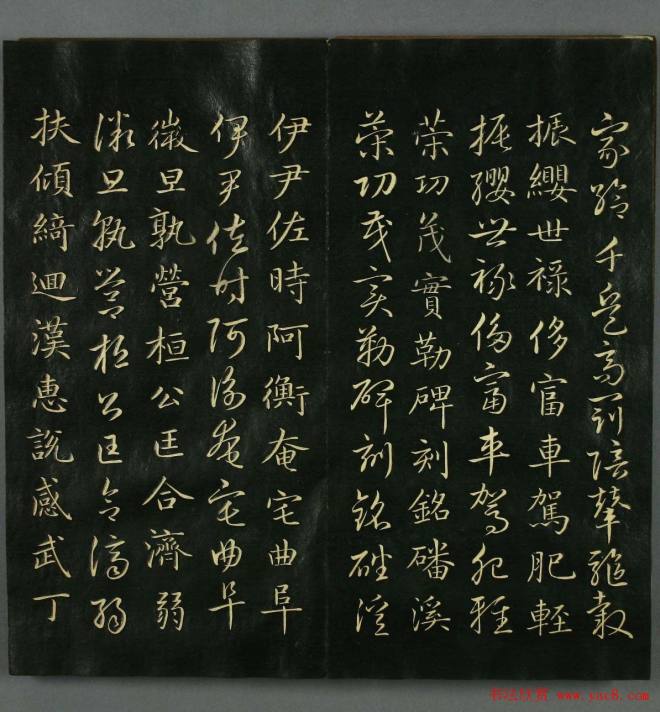 家給千兵高冠陪輦驅轂
振纓世祿侈富車駕肥輕
振纓世祿侈富車駕肥輕
策功茂實勒碑刻銘磻溪
策功茂實勒碑刻銘磻溪
伊尹佐時阿衡奄宅曲阜
伊尹佐時阿衡奄宅曲阜
微旦孰營桓公匡合濟弱
微旦孰營桓公匡合濟弱
扶傾綺迴漢惠說感武丁
书法欣赏 www.yac8.com